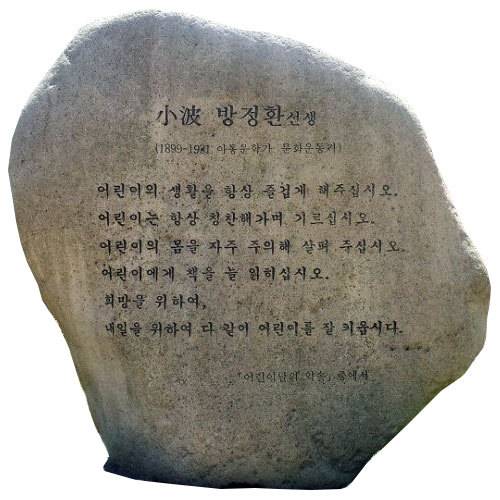 小波 방정환선생
(1899-1931 아동문학가 문화운동가)
어린이의 생활을 항상 즐겁게 해주십시오.
어린이는 항상 칭찬해가며 기르십시오.
어린이의 몸을 자주 주의해 살펴 주십시오.
어린이에게 책을 늘 읽히십시오.
희망을 위하여,
내일을 위하여 다 같이 어린이를 잘 키웁시다.
「어린이날의 약속」중에서